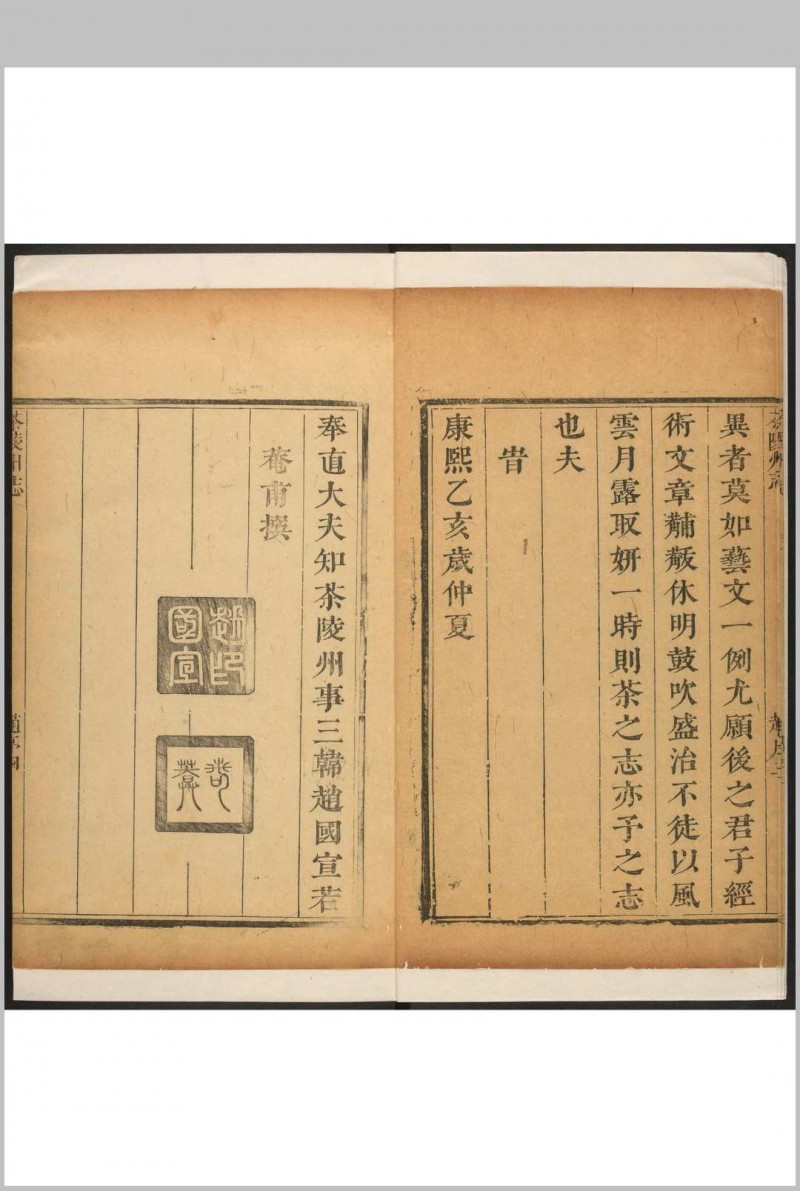 異者莫如藝文一例尤願後之君子經
術文章黼黻休明鼓吹盛治不徒以風
雲月露取妍一時則茶之志亦予之志
也夫
旹
康熙乙亥歲仲夏
奉直大夫知茶陵州事三韓趙國宣若
菴甫撰
趙國宣印
若菴
茶陵州志